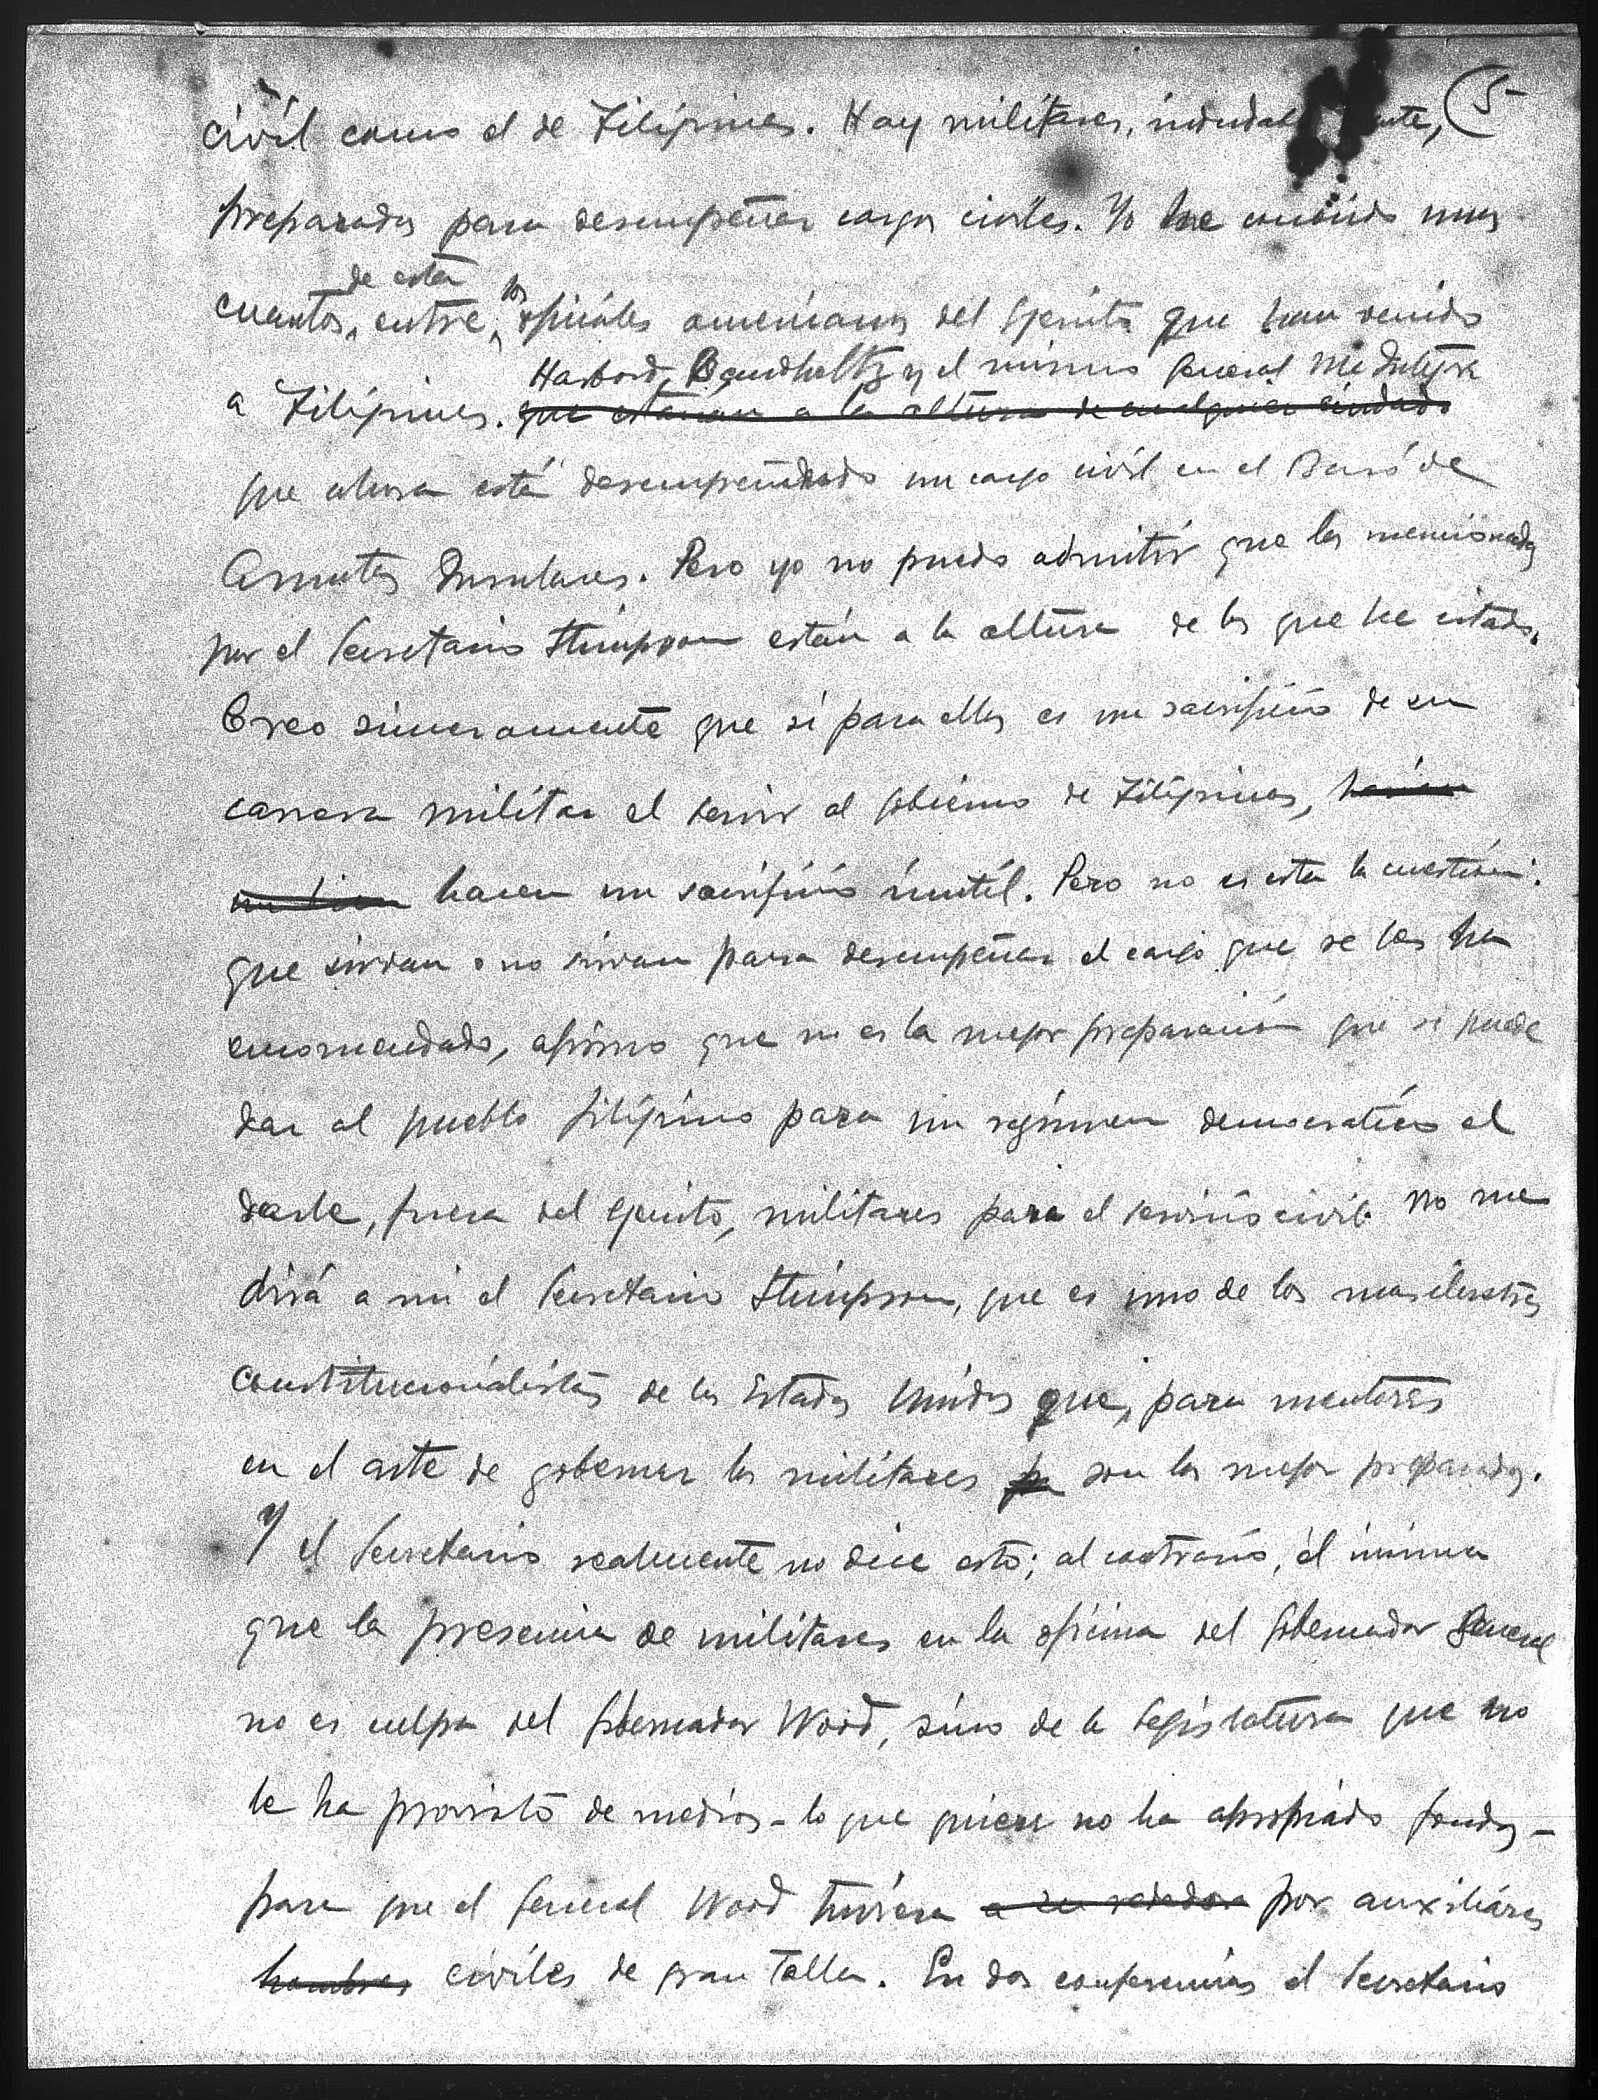 5-
civil como el de Filipinas. Hay militares, indudablemente,
preparados para desempeñar cargos civiles. Yo he conocido unos
de estos los
cuantos, entre oficiales americanos del Ejercito que han venido
Harbord, Bandholtz y el mismo General McIntyre
a Filipinas. que estarian a la altura de cualquier ciudado
que ahora está desempeñando un cargo civil en el Buró de
Asuntos Insulares. Pero yo no puedo admitir que los mencionados
por el Secretario Stimpson están a la altura de los que he citado.
Creo sinceramente que si para ellos es un sacrificio de su
carrera militar el servir al gobierno de Filipinas, harian
un bien hacen un sacrificio inutil. Pero no es esta la cuestión:
que sirvan o no sirvan para desempeñar el cargo que se les ha
encomendado, afirmo que no es la mejor preparación que se puede
dar al pueblo filipino para un regimen democratico el
darle, fuera del Ejercito, militares para el servicio civil. No me
dirá a mi el Secretario Stimpson, que es uno de los mas ilustres
constitucionalistas de los Estados Unidos que, para mentores
en el arte de gobernar los militares son los mejor preparados.
Y el Secretario realmente no dice esto; al contrario, él insinua
que la presencia de militares en la oficina del Gobernador General
no es culpa del Gobernador Wood, sino de la legislatura que no
le ha provisto de medios - lo que quiere no ha apropiado fondos -
para que el General Wood tuviera a su rededor por auxiliares
hombres civiles de gran talla. En dos conferencias el Secretario